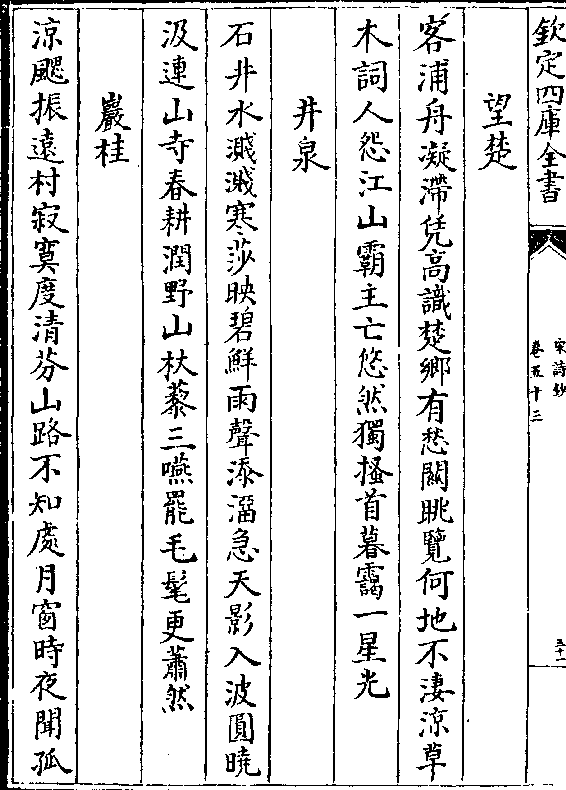 欽定四庫全書
宋詩鈔
卷五十三
五十一
望楚
客浦舟凝滯凭高識楚鄉有愁闕眺覽何地不淒涼草
木詞人怨江山霸主亡悠然獨搔首暮靄一星光
井泉
石井水濺濺寒莎映碧鮮雨聲添溜急天影入波圓曉
汲連山寺春耕潤野山杖藜三嚥罷毛髦更蕭然
巖桂
涼颸振遠村寂寞度清芬山路不知處月窗時夜聞孤